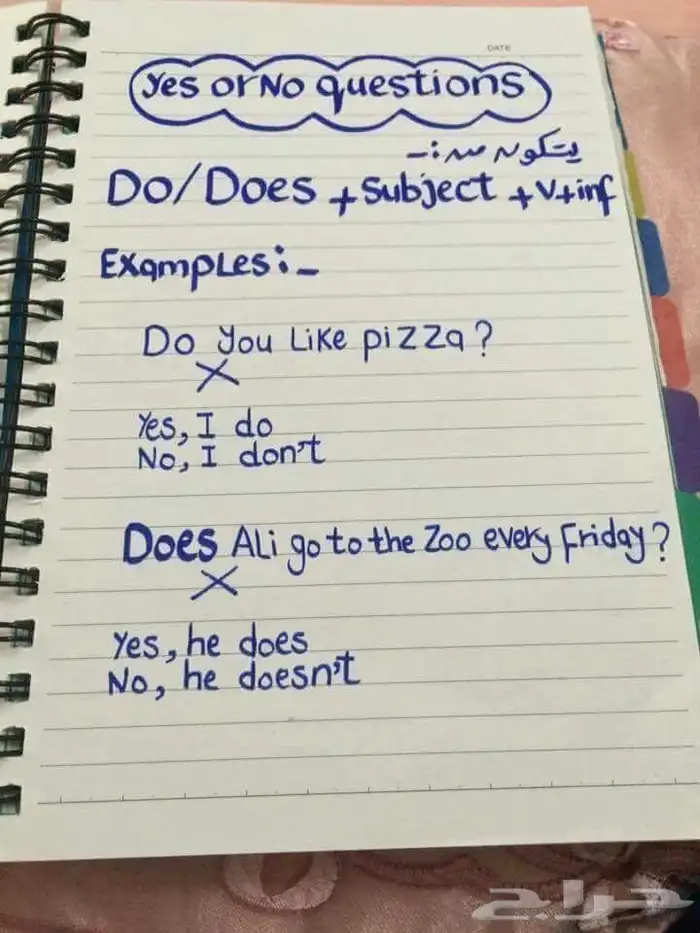 DATE
Yes or No questions
يتكون من :-
Do/Does + Subject + V+inf
Examples:-
Do you Like pizza?
X
Yes, I do
No, I don't
Does Ali go to the Zoo every Friday?
X
Yes, he does
No, he doesn't
حراج